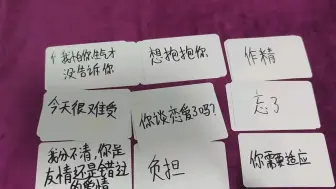 我怕你生气才
没告诉你
想抱抱你
作精
今天很难受
你谈恋爱了吗?
忘了
我分不清,你是
友情还是错过
的爱情
负担
你需要适应